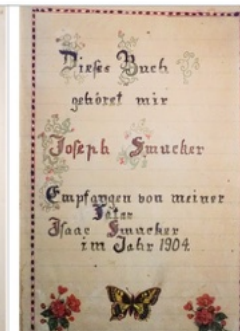 Dieses Buch
gehöret mir
Joseph Smucker
Empfangen von meiner
Fater
Isaac Smucker
im Jahr 1904.